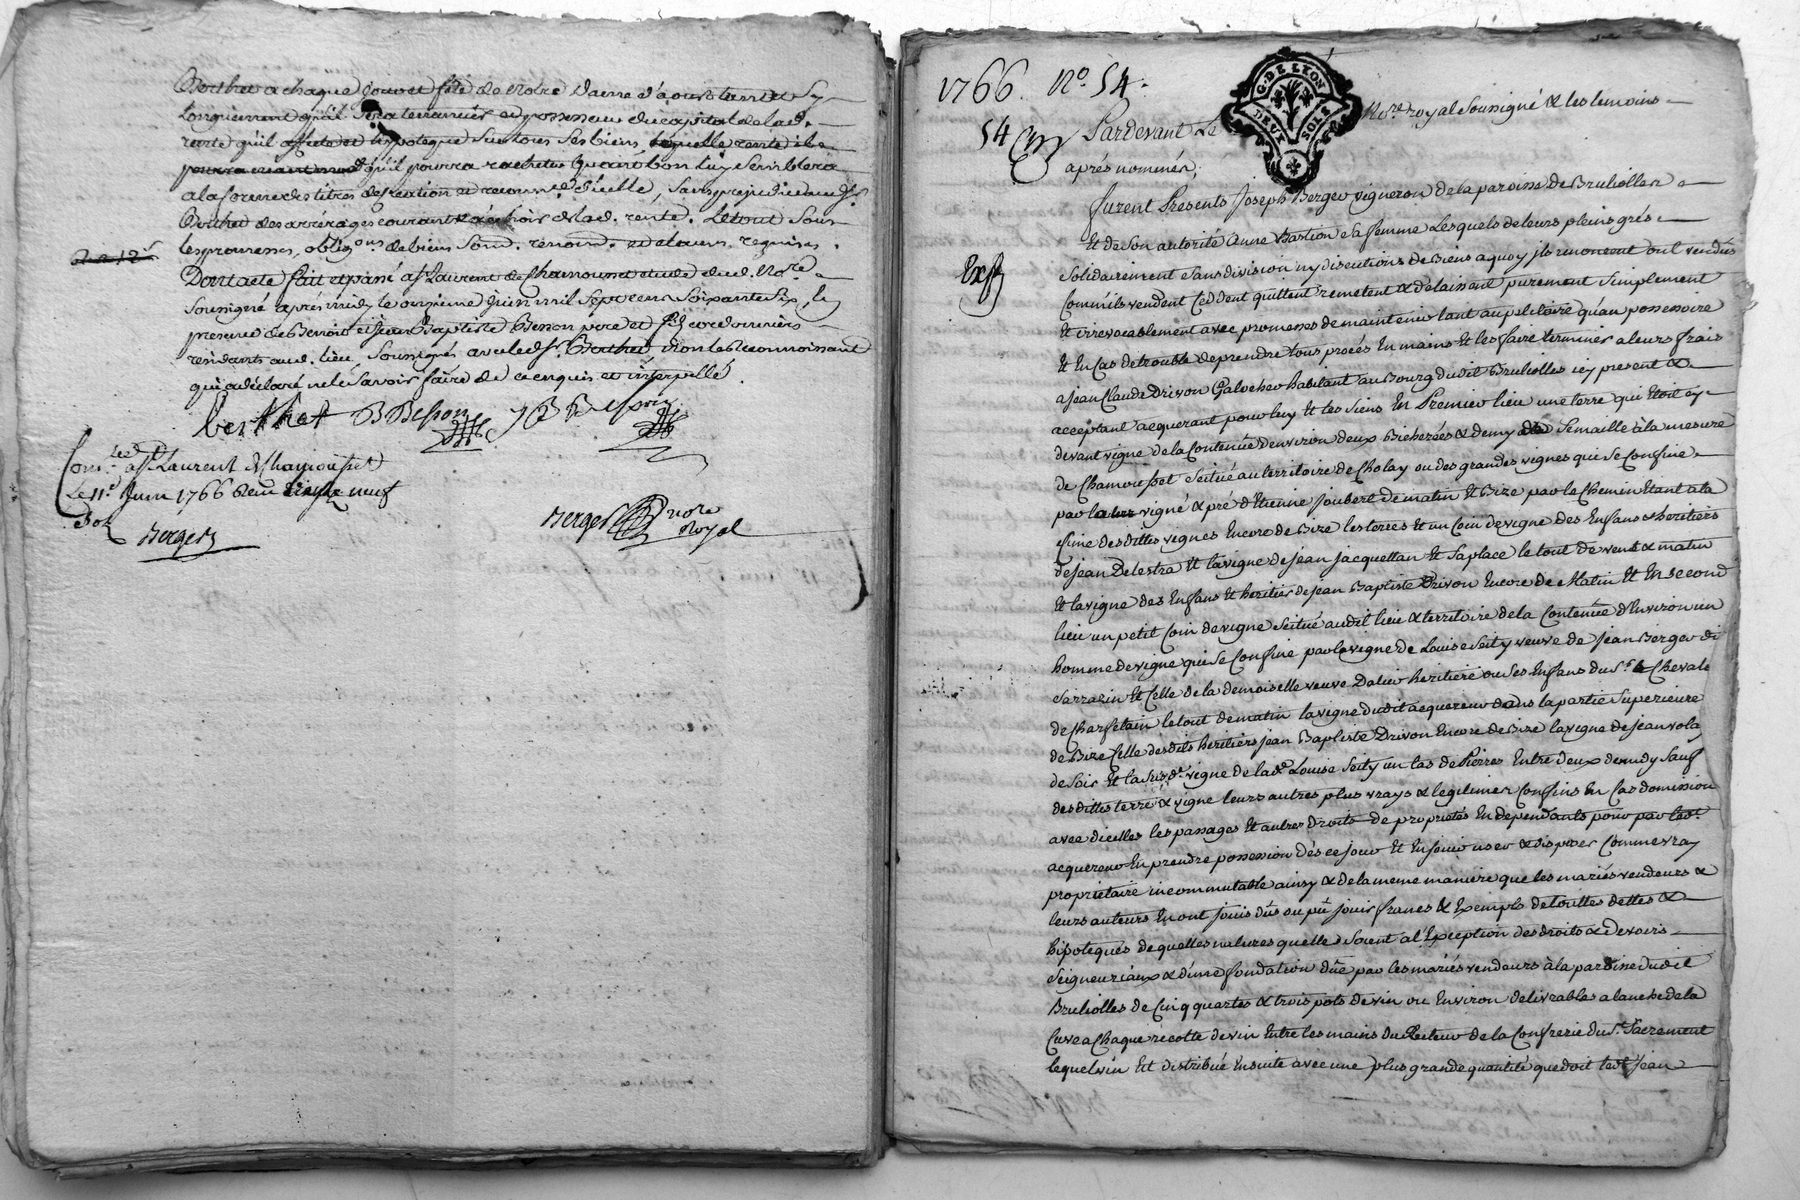 Berthet a chaque jour et fête de Notre Dame d'aoust tant et sy
longuement qu'il sera tenancier et possesseur du capital de lad.
rente qu'il affecte et ipoteque sur tous ses biens laquelle rente
qu'il pourra racheter quant bon luy semblera
a la forme des titres de création et reconn.ce d'icelle, sans prejudice aud. Sr.
Berthet des arrérages courant et échois de lad. rente. Le tout sous
les promesses, oblig.ons de biens soum. renond. et clauses requises.
Dont acte fait et passé a St Laurent de Chamousset etude dud. No.re
soussigné après midy le onzieme juin mil sept cens soixante six, en
presence de Benoit et Jean Baptiste Besson pere et fils cordonniers
residants aud. lieu soussignés avec led. Sr. Berthet, non les reconnoissant
qui a déclaré ne le savoir faire de ce enquis et interpellé.
berthet B Besson J B Besson
Con.lé a St Laurent de Chamousset
Le 11.e Juin 1766 Reçu neuf
sols
Berger
Berger no.re
Royal
1766. No. 54.
G. DE LYON
DEUX SOLS
54
Pardevant Le No.re royal soussigné & les temoins
aprés nommés.
furent Presents Joseph Berger vigneron de la paroisse de Brullioles
Et de son autorité Anne Bastion sa femme Lesquels de leurs pleins grés
solidairement sans division ny discutions de Biens a quoy ils renoncent ont vendûs
Comm'ils vendent Ceddent quittent remetent & delaissent purement simplement
Et irrevocablement avec promesses de maintenir tant au petitoire qu'au possessoire
Et En Cas de trouble de prendre tous procés En mains Et les faire terminer a leurs frais
a Jean Claude Drivon Galocher habitant au Bourg dudit Brullioles icy present &
acceptant acquerant pour luy Et les siens En Premier lieu une terre qui Etoit cy
devant vigne de la Contenüe d'environ deux Bicherées & demy Semaille à la mesure
de Chamousset scitué au territoire de Cholay ou des grandes vignes qui se Confine
par vigne & pré d'Etienne Joubert de matin Et Bize par le Chemin Etant a la
Cime des dittes vignes Encore de Bize les terres Et un Coin de vigne des Enfans & heritiers
de Jean Delestra Et la vigne de Jean Jacquettan Et sa place le tout de vent & matin
Et la vigne des Enfans Et heritiers de Jean Baptiste Drivon Encore de Matin Et En second
lieu un petit Coin de vigne scitué audit lieu & territoire de la Contenüe d'Environ un
homme de vigne qui se Confine par la vigne de Louise Seity veuve de Jean Berger dit
Sarrazin Et Celle de la demoiselle veuve Dalier heritiere ou ses Enfans du Sr. Chevale
de Charfetain le tout de matin la vigne dudit acquereur dans la partie superieure
de Bize Celle desdits heritiers Jean Baptiste Drivon Encore de Bize la vigne de Jean vola
de soir Et la susd.e vigne de lad.e Louise Seity un tas de Pierres Entre deux de midy sauf
des dittes terre & vigne leurs autres plus vrays & legitimes Confins En Cas d'omission
avec d'icelles les passages Et autres droits de proprietés En dependants pour par led.t
acquereur En prendre possession dés ce jour Et En jouir user & disposer Comme vray
proprietaire incommutable ainsy & de la meme maniere que les mariés vendeurs &
leurs auteurs En ont jouis dûs ou pû jouir francs & Exempts de touttes dettes &
hipoteques de quelles natures quelle soient a l'Exception des droits & devoirs
seigneuriaux & d'une fondation dûe par les mariés vendeurs à la paroisse dudit
Brullioles de Cinq quartes & trois pots de vin ou Environ delivrables a l'anche de la
Cuve a Chaque récolte de vin Entre les mains du Recteur de la Confrerie du St. Sacrement
lequel vin Est distribué Ensuite avec une plus grande quantité que doit led.t Jean